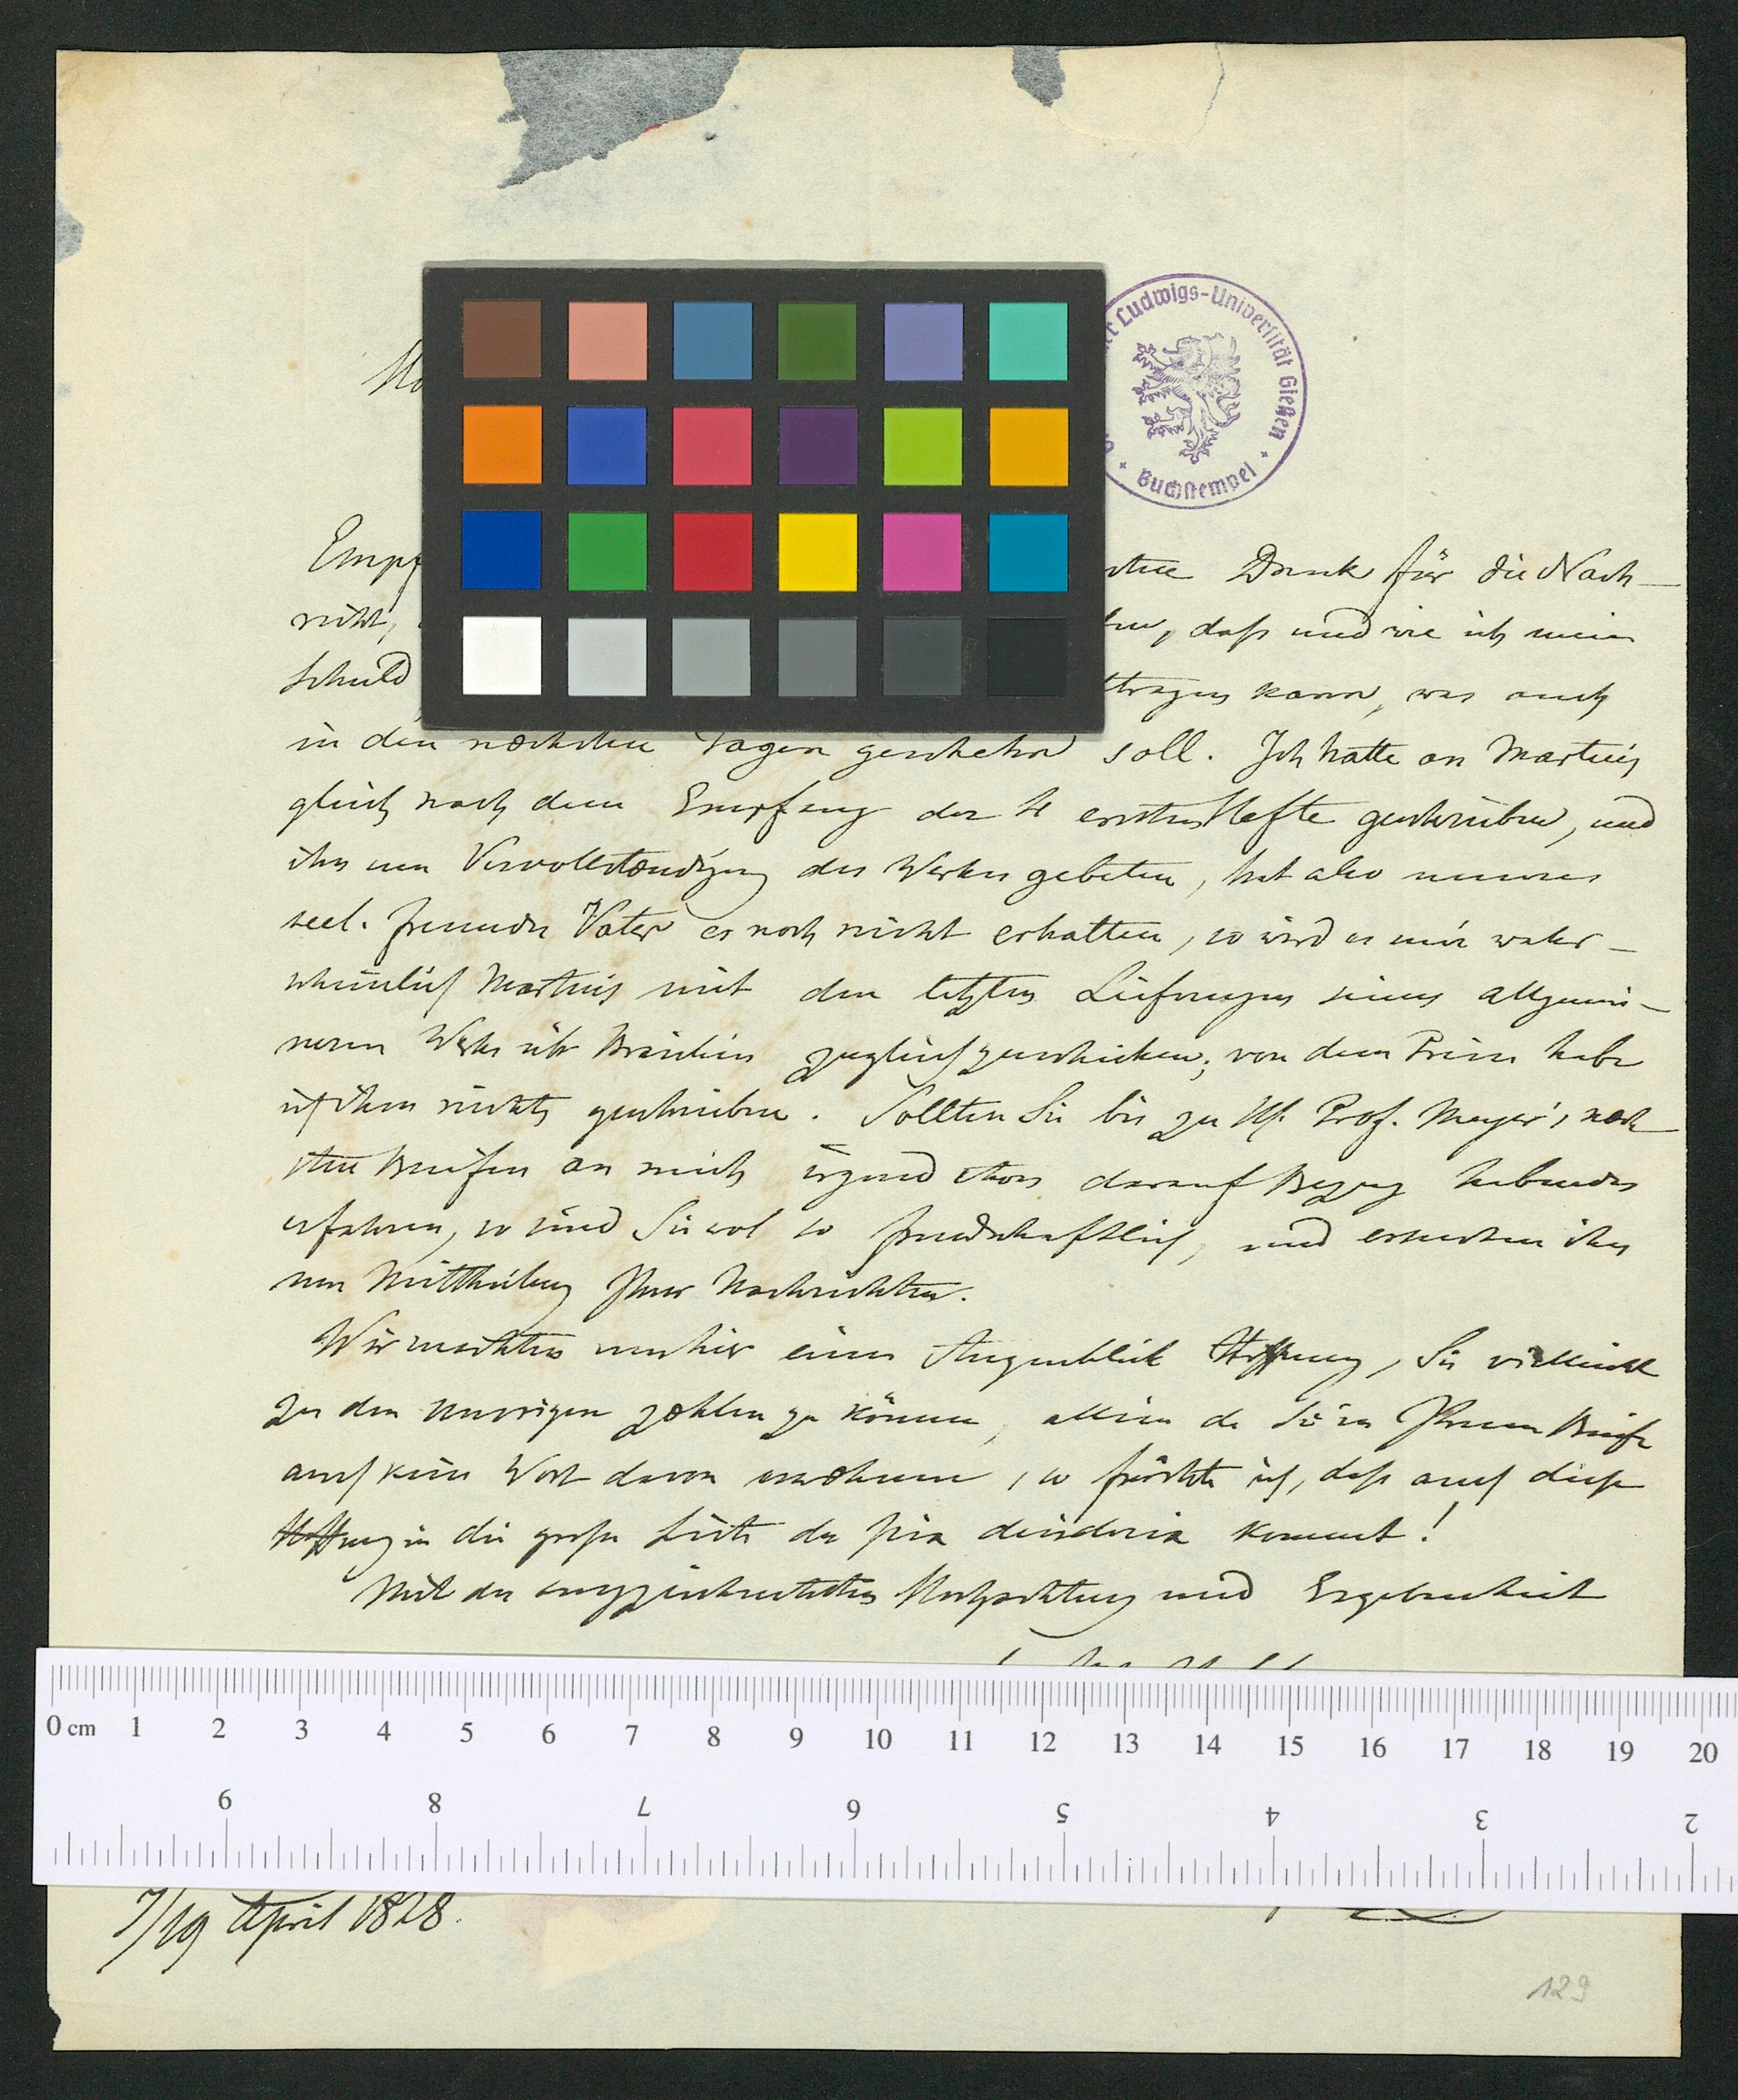 Ludwigs-Universität Gießen
Buchstempel
Dank für die Nach-
richt, daß und wie ich meine
Schuld kann, was auch
in den nächsten Tagen geschehen soll. Ich hatte an Martius
gleich nach dem Empfang der 4 ersten Hefte geschrieben, und
ihn um Vervollständigung des Werkes gebeten, hat also unseres
seel. Freundes Vater es noch nicht erhalten, so wird es mir wahr-
scheinlich Martius mit den letzten Lieferungen seines allgemei-
neren Werks über Brasilien zugleich zuschicken; von dem Preise habe
ich ihm nichts geschrieben. Sollten Sie bis zu H. Prof. Meyer's näch-
sten Briefen an mich irgend etwas darauf Bezug habendes
erfahren, so sind Sie wol so freundschaftlich, und ersuchen ihn
um Mittheilung Ihrer Nachrichten.
Wir machten uns hier einen Augenblick Hoffnung, Sie vielleicht
zu den unsrigen zählen zu können, allein da Sie in Ihrem Briefe
auch kein Wort davon erwähnen, so fürchte ich, daß auch diese
Hoffnung in die große Liste der pia desideria kommt!
Mit der ausgezeichnetsten Hochachtung und Ergebenheit
0 cm 1 2 3 4 5 6 7 8 9 10 11 12 13 14 15 16 17 18 19 20
9 8 7 6 5 4 3 2
7/19 April 1828.
129